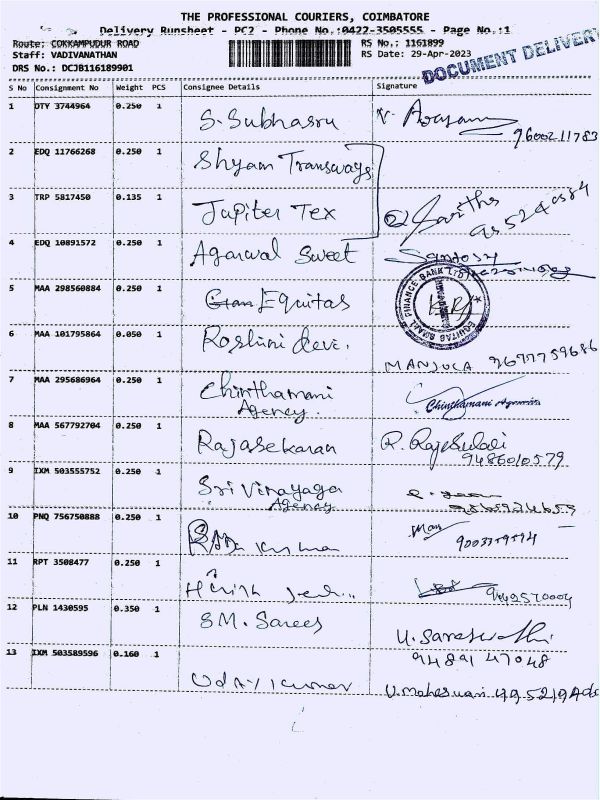 THE PROFESSIONAL COURIERS, COIMBATORE
Delivery Runsheet - PC2 - Phone No.:0422-3505555 - Page No.:1
Route: COKKAMPUDUR ROAD
RS No.: 1161899
Staff: VADIVANATHAN
RS Date: 29-Apr-2023
DRS No.: DCJB116189901
DOCUMENT DELIVERY
S No Consignment No Weight PCS Consignee Details Signature
1 DTY 3744964 0.250 1 S. Subhasru
9600211783
2 EDQ 11766268 0.250 1 Shyam Transways
3 TRP 5817450 0.135 1 Jupiter Tex
4 EDQ 10891572 0.250 1 Agarwal Sweet Santosh
5 MAA 298560884 0.250 1 Equitas
EQUITAS SMALL FINANCE BANK LTD
6 MAA 101795864 0.050 1 Roshini devi.
MANJULA 9677759686
7 MAA 295686964 0.250 1 Chinthamani
Agency.
Chinthamani Agencies
8 MAA 567792704 0.250 1 Rajasekaran R. Rajesuladi
9486010579
9 IXM 503555752 0.250 1 Sri Vinayaga
Agency
10 PNQ 756750888 0.250 1 kumar
11 RPT 3508477 0.250 1
9442570004
12 PLN 1430595 0.350 1 SM. Sarees
U. Saraswathi
9489147048
13 IXM 503589596 0.160 1 Uday kumar
U. Maheswari